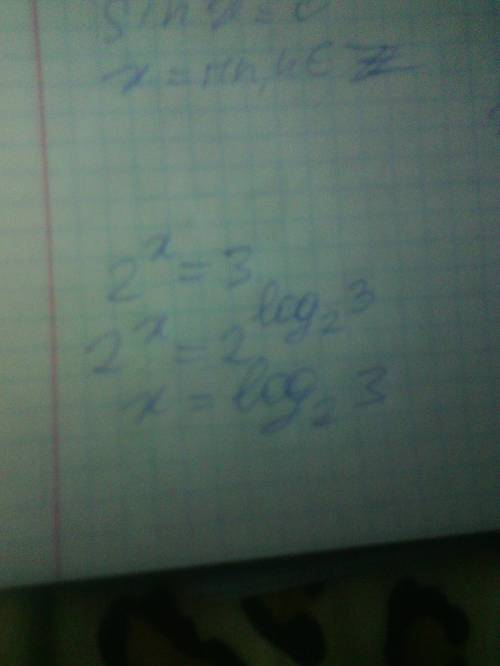 sin x = 0
x = πn, n ∈ Z
2^x = 3
2^x = 2^{log_2 3}
x = log_2 3